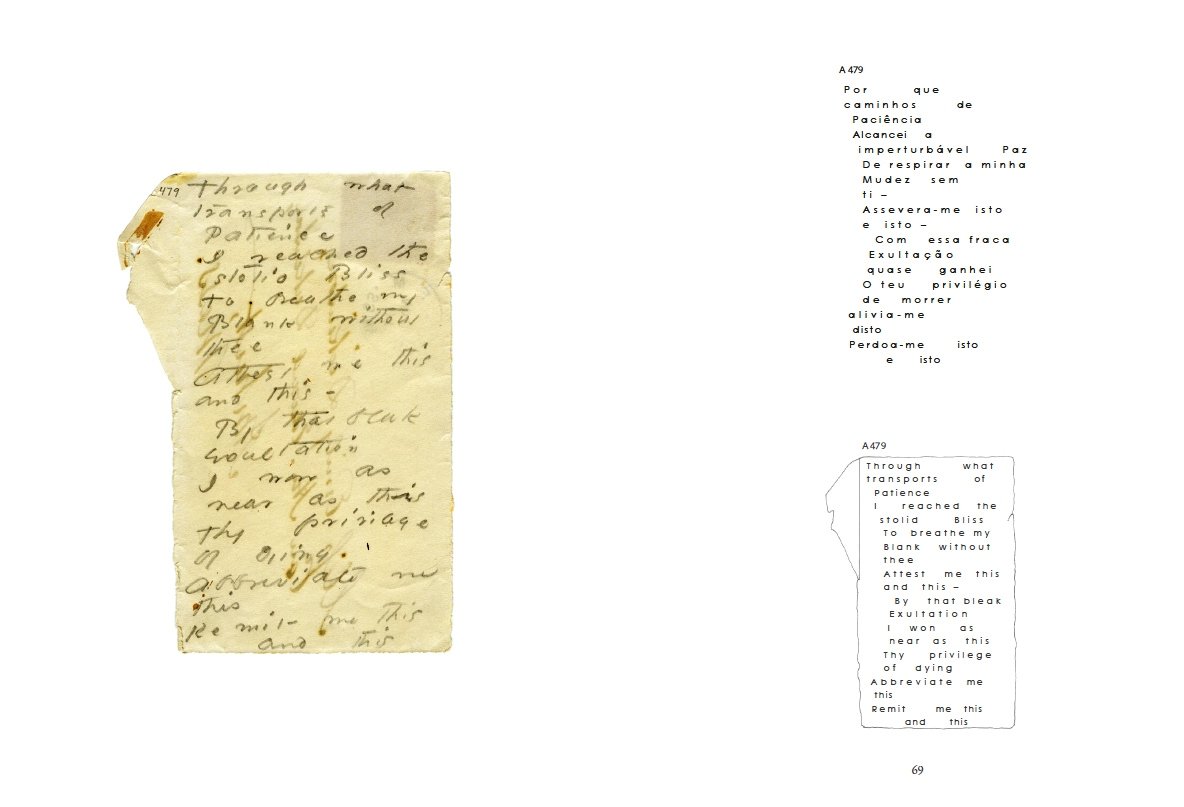 479
Through what
transports of
Patience
I reached the
stolid Bliss
To breathe my
Blank without
thee
Attest me this
and this –
By that bleak
Exultation
I won as
near as this
Thy privilege
of dying.
Abbreviate me
this
Remit me this
and this
A 479
Por que
caminhos de
Paciência
Alcancei a
imperturbável Paz
De respirar a minha
Mudez sem
ti –
Assevera-me isto
e isto –
Com essa fraca
Exultação
quase ganhei
O teu privilégio
de morrer
alivia-me
disto
Perdoa-me isto
e isto
A 479
Through what
transports of
Patience
I reached the
stolid Bliss
To breathe my
Blank without
thee
Attest me this
and this –
By that bleak
Exultation
I won as
near as this
Thy privilege
of dying
Abbreviate me
this
Remit me this
and this
69